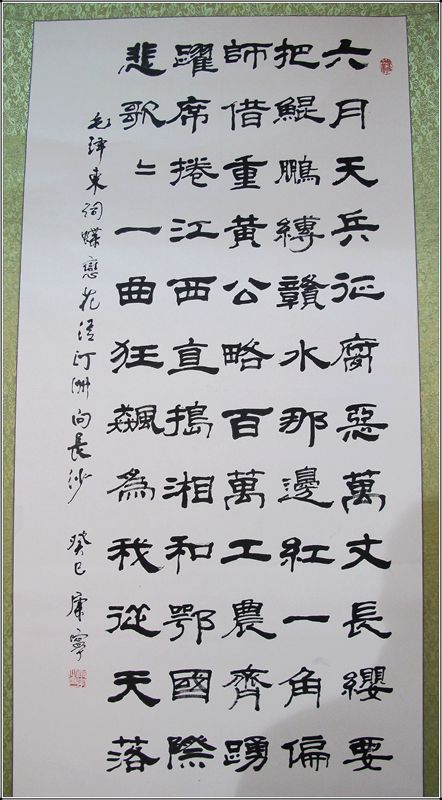 六月天兵征腐惡萬丈長纓要
把鯤鵬縛贛水那邊紅一角偏
師借重黃公略百萬工農齊踴
躍席捲江西直搗湘和鄂國際
悲歌〻一曲狂飆為我從天落
毛澤東詞蝶戀花從汀洲向長沙 癸巳 康寧